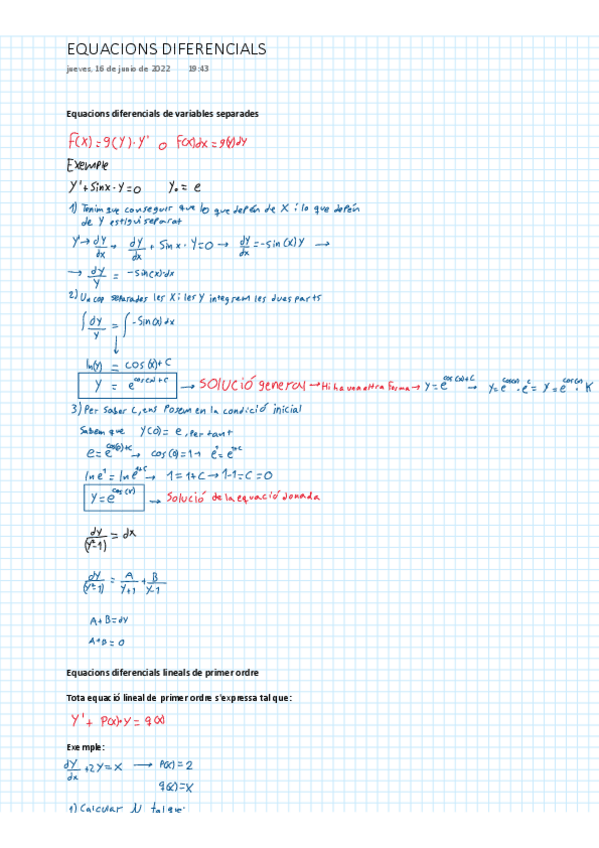 EQUACIONS DIFERENCIALS
jueves, 16 de junio de 2022 19:43
Equacions diferencials de variables separades
F(X)=g(Y)·Y' o F(X)dx=g(y)dy
Exemple
Y'+Sinx·Y=0 Y₀=e
1) Tenim que conseguir que lo que depèn de X i lo que depèn
de Y estigui separat
Y'→dy/dx → dy/dx + Sinx·Y=0 → dy/dx=-sin(X)Y →
→ dy/Y = -sin(x)·dx
2) Un cop separades les X i les Y integrem les dues parts
∫dy/Y = ∫-Sin(x)dx
ln(y) = cos(x)+C
Y = e^(cos(x)+C) → SOLUCIÓ general → Hi ha una altra Forma → Y=e^(cos(x)+C) → Y=e^(cos(x))·e^C = Y=e^(cos(x))·K
3) Per Saber C, ens Posem en la condició inicial
Sabem que Y(0)=e, Per tant
e=e^(cos(0)+C) → cos(0)=1 → e¹=e^(1+C)
ln e¹=ln e^(1+C) → 1=1+C → 1-1=C=0
Y=e^(cos(x)) → Solució de la equació donada
dy/(y²-1) = dx
dy/(y²-1) = A/(y+1) + B/(y-1)
A+B=dy
A+B=0
Equacions diferencials lineals de primer ordre
Tota equació lineal de primer ordre s'expressa tal que:
Y'+ P(x)·Y=q(x)
Exemple:
dy/dx +2Y=X → P(x)=2
q(x)=X
1) Calcular N tal que: